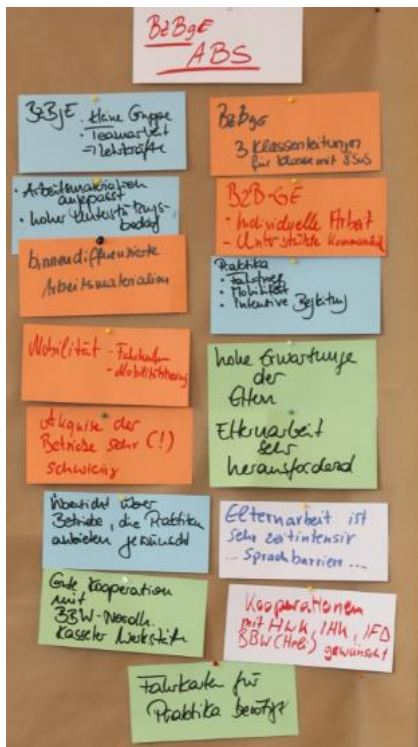 BzBgE
ABS
BzBgE · kleine Gruppe
· Teamarbeit
→ Lehrkräfte
BzBgE
3 Klassenleitungen
für Klasse mit 8 SuS
· Arbeitsmaterialien
angepasst
· hoher Unterstützungs-
bedarf
BzB-GE
· Individuelle Arbeit
- Unterstützte Kommunik
binnendifferenzierte
Arbeitsmaterialien
Praktika
· Mobilität
· Intensive Begleitung
Mobilität - Fahrkarten
- Mobilitätstraining
hohe Erwartunge
der
Eltern
Elternarbeit
sehr
herausfordernd
Akquise der
Betriebe sehr (!)
schwierig
Übersicht über
Betriebe, die Praktika
anbieten gewünscht
Elternarbeit ist
sehr zeitintensiv
... Sprachbarriere ...
Gute Kooperation
mit
BBW-Nordh.
Kasseler Werkstätt
Kooperationen
mit HWK, IHK, IFD
BBW (HeLi) gewünscht
Fahrkarten für
Praktika benötigt